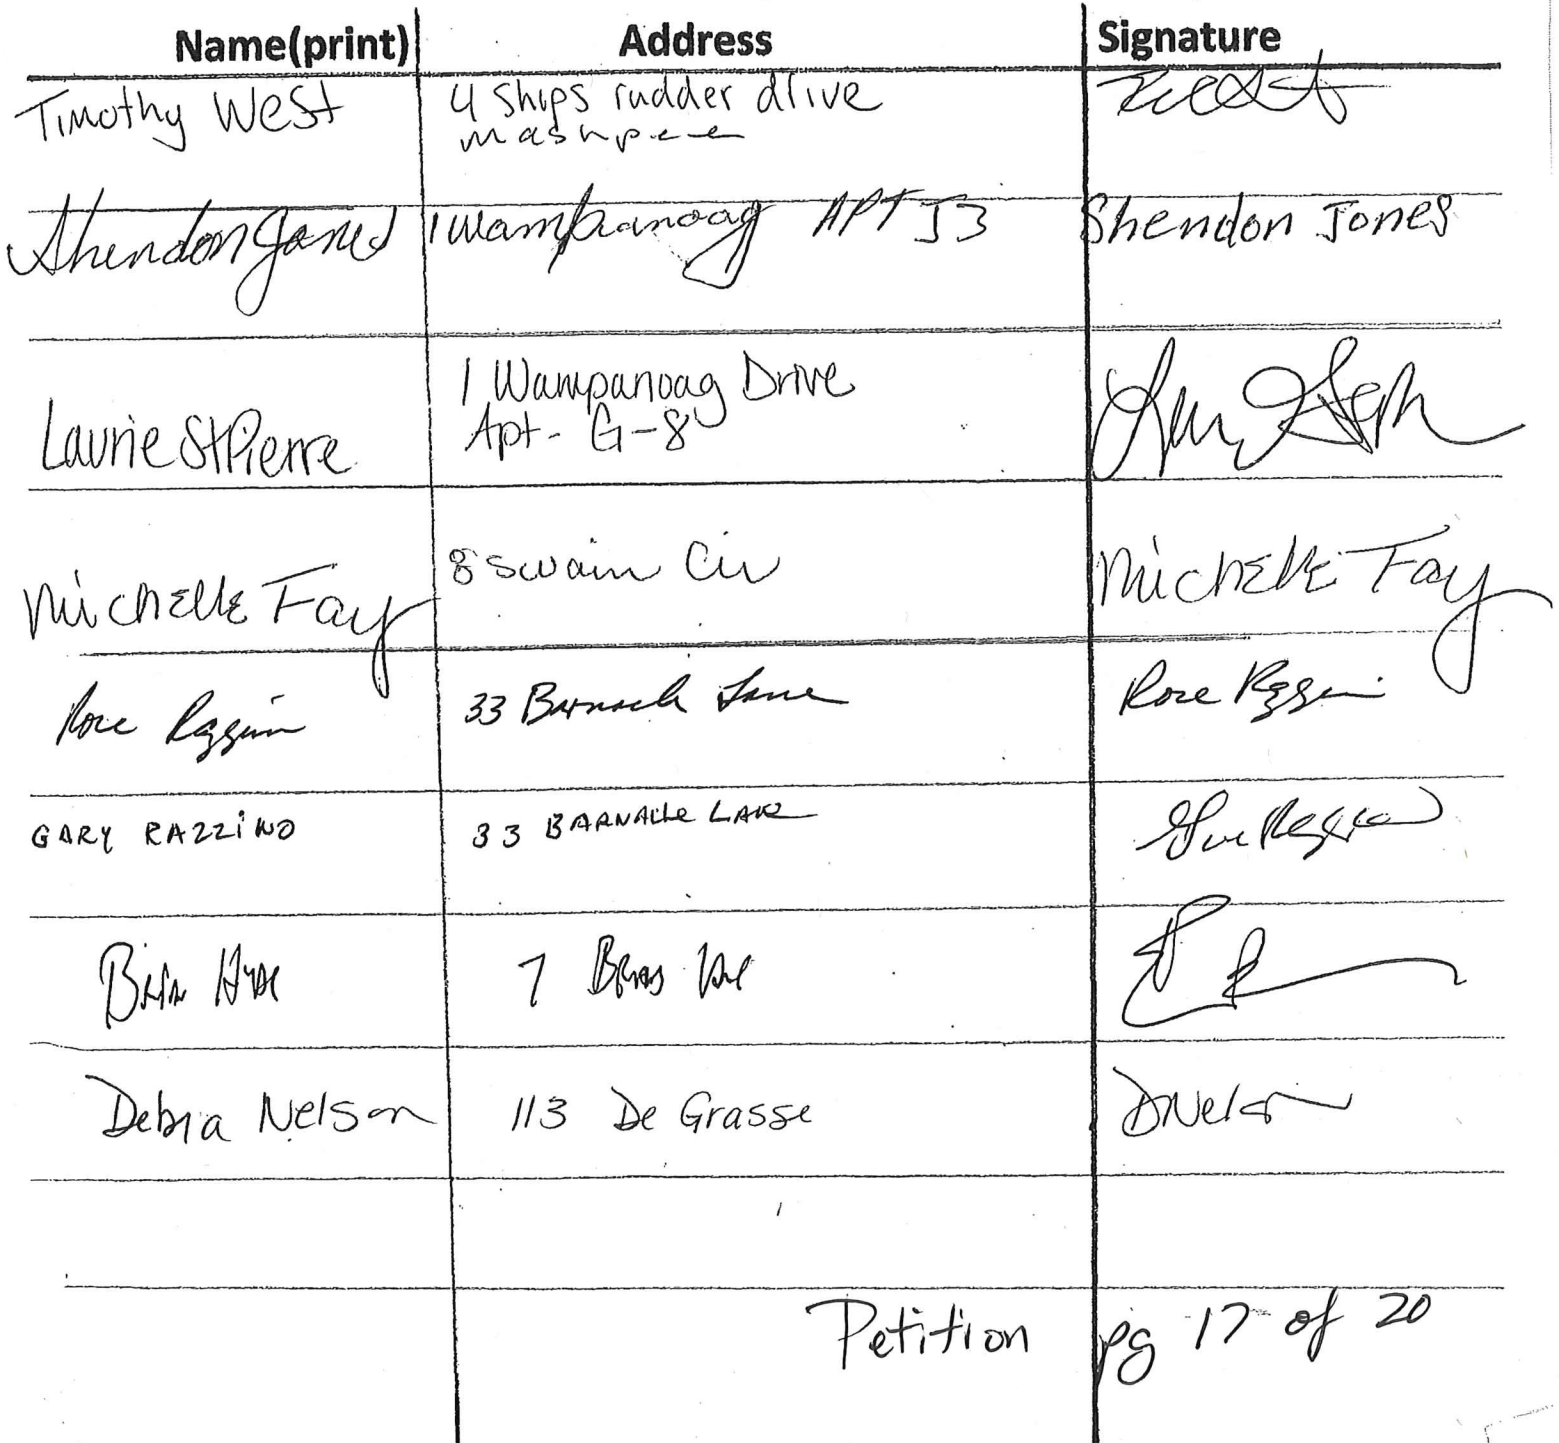 Name(print) Address Signature
Timothy West 4 Ships rudder drive
mashpee
Shendon Jones 1 Wampanoag APT J3 Shendon Jones
1 Wampanoag Drive
Laurie St Pierre Apt- G-8
Michelle Fay 8 Swain Cir Michelle Fay
Rose 33 Barnacle Lane Rose
GARY RAZZINO 33 BARNACLE LANE
Brian 7
Debra Nelson 113 De Grasse DNelson
Petition pg 17 of 20